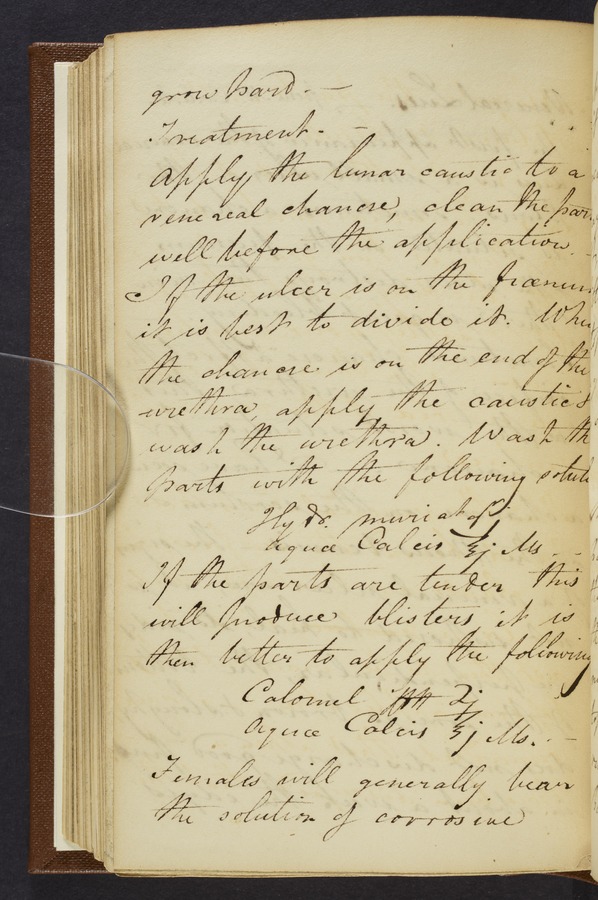 grow hard. —
Treatment. —
Apply the lunar caustic to a
venereal chancre, clean the par
well before the application. -
If the ulcer is on the frænum
it is best to divide it. When
the chancre is on the end of the
urethra, apply the caustic &
wash the urethra. Wash th
parts with the following solut
Hydr. muriat
aqua Calcis ℥j Ms. -
If the parts are tender this
will produce blisters, it is
then better to apply the following
Calomel ʒj
Aqua Calcis ℥j Ms. -
Females will generally bear
the solution of corrosive